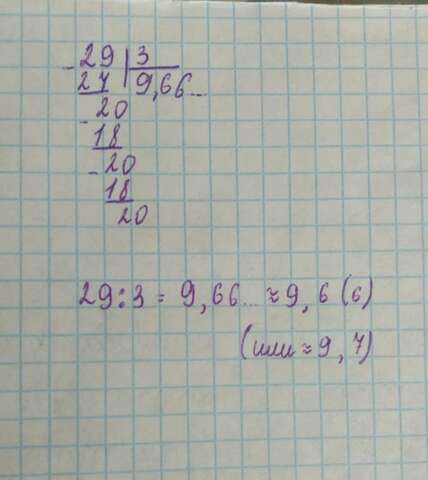 - 29 | 3
27 | 9,66...
- 20
18
- 20
18
20
29:3 = 9,66... ≈ 9, 6 (6)
(или ≈ 9, 7)